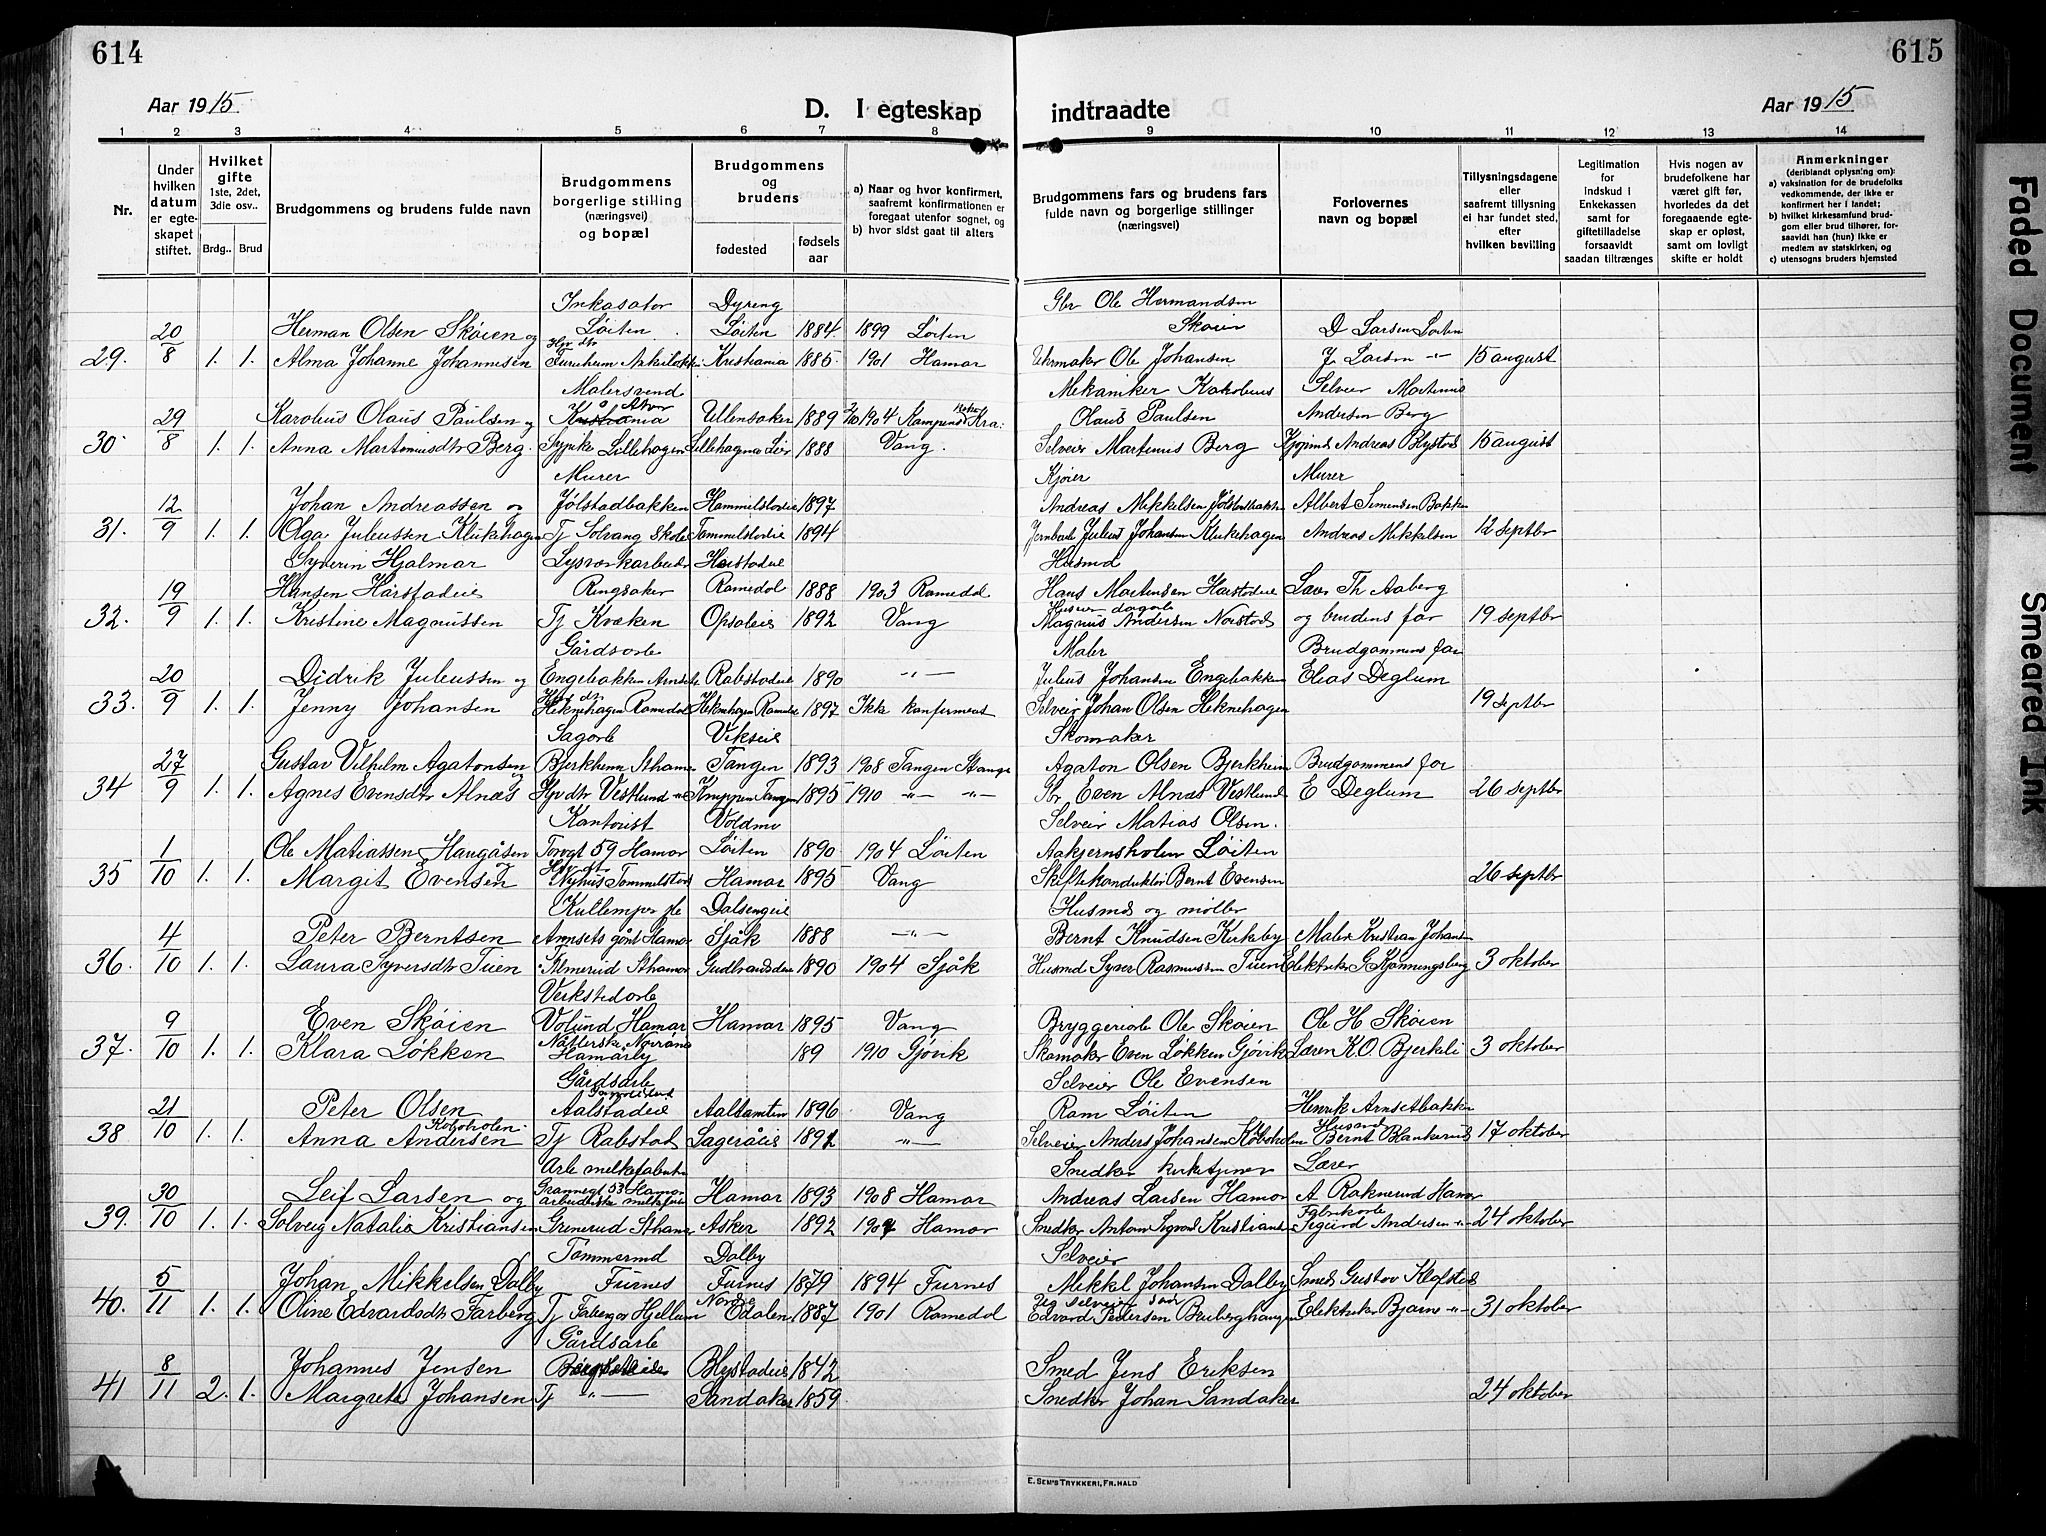 614
615
Aar 1915.
D. I egteskap
indtraadte
Aar 1915
1 2 3 4 5 6 7 8 9 10 11 12 13 14
Nr.
Under hvilken datum er egteskapet stiftet.
Hvilket gifte 1ste, 2det, 3die osv..
Brdg.. Brud
Brudgommens og brudens fulde navn
Brudgommens borgerlige stilling (næringsvei) og bopæl
Brudgommens og brudens
fødested
fødsels aar
a) Naar og hvor konfirmert, saafremt konfirmationen er foregaat utenfor sognet, og
b) hvor sidst gaat til alters
Brudgommens fars og brudens fars fulde navn og borgerlige stillinger (næringsvei)
Forlovernes navn og bopæl
Tillysningsdagene eller saafremt tillysning ei har fundet sted, efter hvilken bevilling
Legitimation for indskud i Enkekassen samt for giftetilladelse forsaavidt saadan tiltrænges
Hvis nogen av brudefolkene har været gift før, hvorledes da det foregaaende egteskap er opløst, samt om lovligt skifte er holdt
Anmerkninger (deriblandt oplysning om):
a) vaksination for de brudefolks vedkommende, der ikke er konfirmert her i landet;
b) hvilket kirkesamfund brudgom eller brud tilhører, forsaavidt han (hun) ikke er medlem av statskirken, og
c) utensogns bruders hjemsted
Inkasator Dyreng Gbr Ole Hermandsen
20 Herman Olsen Skøien og Løiten Løiten 1884 1899 Løiten Skøien D Larsen Løiten
29. 8 1. 1. Alma Johanne Johannesen Furuheim Kristiania 1885 1901 Hamar Uhrmaker Ole Johansen J Larsen -"- 15 august
Malersvend Mekaniker Karolius Selveier Martenius
29 Karolius Olaus Paulsen og Kristiania Ullensaker 1889 1904 Kampens Kra. Olaus Paulsen Andersen Berg
30 8 1. 1. Anna Marteniusdtr Berg. Sypike Lillehagen Lillehagen 1888 Vang. Selveier Martenius Berg Andreas Blystad 15 august
Murer Kjøier Murer
12 Johan Andreassen og Jølstadbakken Hammelstadeie 1897 Andreas Mikkelsen Albert Simensen Bakken
31. 9 1. 1. Olga Juliussen Klukehagen Tj Solvang Skole Tommelstadeie 1894 Julius Johansen Klukehagen Andreas Mikkelsen 12 septbr
Syverin Hjalmar Harstadeie Husmd
19 Hansen Harstadeie Ringsaker Romedal 1888 1903 Romedal Hans Mortensen Harstadeie Lars Th Aaberg
32. 9 1. 1. Kristine Magnussen Tj Kvæken Opsaleie 1892 Vang Magnus Andersen og brudens far 19 septbr
Gårdsarb Maler Brudgommens far
20 Didrik Juliussen og Engebakken Arnset Rabstadeie 1890 -"- Julius Johansen Engebakken Elias Deglum
33. 9 1. 1. Jenny Johansen Heknehagen Romedal Heknehagen Romedal 1897 Ikke konfirmert Selveier Johan Olsen Heknehagen 19 septbr
Sagarb Vikseie Skomaker
27 Gustav Vilhelm Agatonsen Bjerkheim Sthamar Tangen 1893 1908 Tangen Stange Agaton Olsen Bjerkheim Brudgommens far
34 9 1. 1. Agnes Evensdtr Alnæs Hjv dtr Vestlund -"- Tangen 1895 1910 -"- -"- Gbr Even Alnæs Vestlund E Deglum 26 septbr
Kantorist Voldmo Selveier Matias Olsen.
1 Ole Matiassen Haugåsen Torvgt 59 Hamar Løiten 1890 1904 Løiten Aakjernsholen Løiten
35 10 1. 1. Margit Evensen Nyhus Tommelstad Hamar 1895 Vang Skiftekonduktør Bernt Evensen 26 septbr
Dalsengeie Husmd og møller
4 Peter Berntsen Hamar Sjåk 1888 -"- Bernt Knudsen Kirkeby Maler Kristian Johansen
36. 10 1. 1. Laura Syversdtr Tuen Almerud Sthamar Gudbrandsdalen 1890 1904 Sjåk Husmd Syver Rasmussen Tuen Elektriker G Kjønningsberg 3 oktober
Verkstedarb
9 Even Skøien Volund Hamar Hamar 1895 Vang Bryggeriarb Ole Skøien Ole H Skøien
37. 10 1. 1. Klara Løkken Hamarby 189 1910 Gjøvik Skomaker Even Løkken Gjøvik Læren K.O. Bjerkeli 3 oktober
Gårdsarb Selveier Ole Evensen
21 Peter Olsen Aalstadeie Aalkamten 1896 Vang Rom Løiten Henrik Arnsetbakken
38 10 1. 1. Anna Andersen Koboholen Tj Rabstad Sageråeie 1892 -"- Selveier Anders Johansen Koboholen Husmd Bernt Blankerud 17 oktober
Arb melkefabriken Snedker kirketjener Lærer
30 Leif Larsen og Grønnegt 53 Hamar Hamar 1893 1908 Hamar Andreas Larsen Hamar A Raknerud Hamar
39. 10 1. 1. Solveig Natalie Kristiansen Grinerud Sthamar Asker 1892 1907 Hamar Snedker Anton Sigvard Kristiansen Fabrikarb Sigurd Andersen -"- 24 oktober
Tømmermd Dalby Selveier
5 Johan Mikkelsen Dalby Furnes Furnes 1879 1894 Furnes Mikkel Johansen Dalby Smed Gustav Klofstad
40. 11 1. 1. Oline Edvardsdtr Farberg Tj Farberg Hjellum Nordre Odalen 1887 1901 Romedal Edvard Pedersen Elektriker Bjarne -"- 31 oktober
Gårdsarb
8 Johannes Jensen Blystadeie 1842 Smed Jens Eriksen
41 11 2. 1. Margrete Johansen Tj -"- Sandaker 1859 Snedker Johan Sandaker 24 oktober
E. SEM'S TRYKKERI, FR. HALD
Faded Document
Smeared Ink